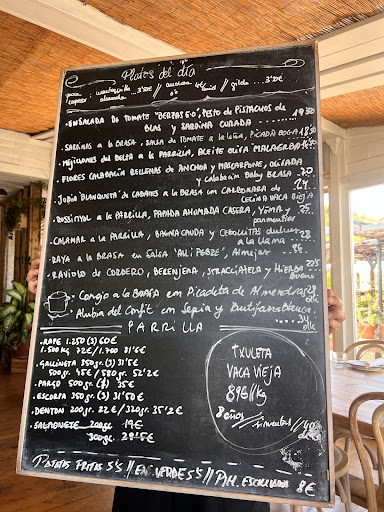 Platos del día
para mantequilla 3'50€ // anchoa // gilda ...3'20€
comer: almendra
.ENSALADA DE TOMATE "BERZAS EO", PESTO DE PISTACHOS DE 19'50
OLAS y SARDINA CURADA
.SARDINAS a la BRASA, SALSA DE TOMATE a la LLEÑA, PICADA 18'50
.MEJILLONES DEL DELTA a la PARRILLA, ACEITE OLIVA MALAGUEÑA 16'50
.FLORES CALABACÍN RELLENAS de ANCHOA y MASCARPONE, OLIVADA
y calabacín Baby BRASA . 20
.JUDÍA "BLANQUETA" de CABANES a la BRASA con CARBONARA de 24
CECINA VACA VIEJA
.ROSSINYOL a la PARRILLA, PAPADA AHUMADA CASERA, YEMA y 25
parmentier
.CALAMAR a la PARRILLA, y CEBOLLITAS dulces
a la llama 28
.RAYA a la BRASA en SALSA "ALL i PEBRE", Almejas 26
.RAVIOLO de CORDERO, BERENJENA, STRACCIATELLA y HIERBA
Buena
Congrio a la BRASA con Picadeta de Almendras 29
Alubia del Confit con Sepia y Butifarra Blanca 34
PARRILLA
.RAPE 1.250 (3) 60€
1.500 kg 72€ / 1.700 81'6€
.GALLINETA 350gr. (3) 31'5€
500gr. 45€ / 580gr. 52'2€
.PARGO 500gr. 25€
.ESCORPA 350gr. (3) 31'50€
.DENTON 200gr. 22€ / 320gr. 35'2€
.SALMONETE 200gr 19€
300gr 28'5€
TXULETA
VACA VIEJA
89€ // kg
8 años
PATATAS FRITAS 5'5 // EN VERDE 5'5 // PIM. ESCALIVADO 8€